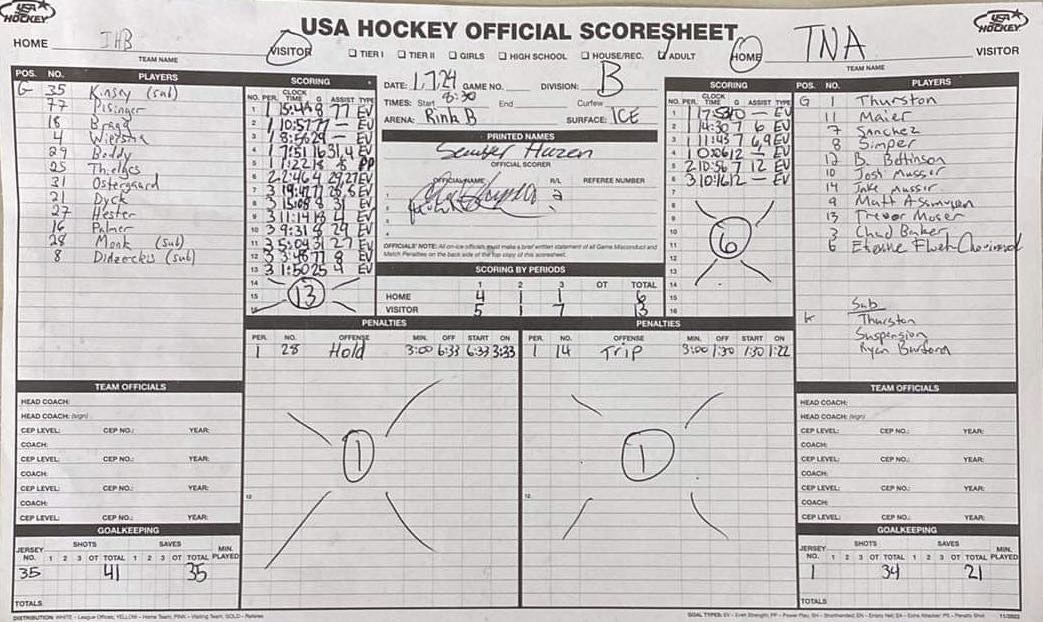 USA HOCKEY
USA HOCKEY OFFICIAL SCORESHEET
USA HOCKEY
HOME IHB VISITOR
TEAM NAME
☐ TIER I ☐ TIER II ☐ GIRLS ☐ HIGH SCHOOL ☐ HOUSE/REC. ADULT
HOME TNA VISITOR
TEAM NAME
POS. NO. PLAYERS
G 35 Kinsey (sub)
77 Pisinger
18 Bragg
4 Wiersma
29 Boddy
25 Thielges
31 Ostergaard
21 Dyck
27 Hester
16 Palmer
28 Monk (sub)
8 Didzerekis (sub)
SCORING
NO. PER. CLOCK TIME G ASSIST TYPE
1 1 15:49 8 77 EV
2 1 10:57 77 — EV
3 1 8:56 29 — EV
4 1 7:51 16 31,4 EV
6 2 2:46 4 29,27 EV
9 3 11:14 18 4 EV
10 3 9:31 8 29 EV
11 3 5:04 31 27 EV
12 3 3:48 77 8 EV
13 3 1:50 25 4 EV
14
15
16
13
DATE: 1.7.24 GAME NO. DIVISION: B
TIMES: Start 8:30 End Curfew
ARENA: Rink B SURFACE: ICE
PRINTED NAMES
OFFICIAL SCORER
OFFICIAL NAME R/L REFEREE NUMBER
OFFICIALS' NOTE: All on-ice officials must make a brief written statement of all Game Misconduct and
Match Penalties on the back side of the top copy of this scoresheet.
SCORING BY PERIODS
1 2 3 OT TOTAL
HOME 4 1 1 6
VISITOR 5 1 7 13
SCORING
NO. PER. CLOCK TIME G ASSIST TYPE
2 1 14:30 7 6 EV
3 1 11:45 7 6,9 EV
4 1 0:06 12 — EV
5 2 10:56 7 12 EV
6 3 10:16 12 — EV
7
8
9
10
11
12
13
14
15
16
6
POS. NO. PLAYERS
G 1 Thurston
11 Maier
7 Sanchez
8 Simper
12 B. Bettinson
10 Josh Musser
14 Jake Musser
9 Matt Asmussen
13 Trevor Moser
3 Chad Baker
6 Etienne
Sub
Thurston
Suspension
Ryan
PENALTIES
PER. NO. OFFENSE MIN. OFF START ON
1 28 Hold 3:00 6:33 6:33 3:33
1
PENALTIES
PER. NO. OFFENSE MIN. OFF START ON
1 14 Trip 3:00 1:30 1:30 1:22
1
TEAM OFFICIALS
HEAD COACH:
HEAD COACH: (sign)
CEP LEVEL: CEP NO.: YEAR:
COACH:
CEP LEVEL: CEP NO.: YEAR:
COACH:
CEP LEVEL: CEP NO.: YEAR:
COACH:
CEP LEVEL: CEP NO.: YEAR:
GOALKEEPING
JERSEY NO. SHOTS 1 2 3 OT TOTAL SAVES 1 2 3 OT TOTAL MIN. PLAYED
35 41 35
TOTALS
TEAM OFFICIALS
HEAD COACH:
HEAD COACH: (sign)
CEP LEVEL: CEP NO.: YEAR:
COACH:
CEP LEVEL: CEP NO.: YEAR:
COACH:
CEP LEVEL: CEP NO.: YEAR:
COACH:
CEP LEVEL: CEP NO.: YEAR:
GOALKEEPING
JERSEY NO. SHOTS 1 2 3 OT TOTAL SAVES 1 2 3 OT TOTAL MIN. PLAYED
1 34 21
TOTALS
DISTRIBUTION: WHITE - League Offices; YELLOW - Home Team; PINK - Visiting Team; GOLD - Referee
11/2023